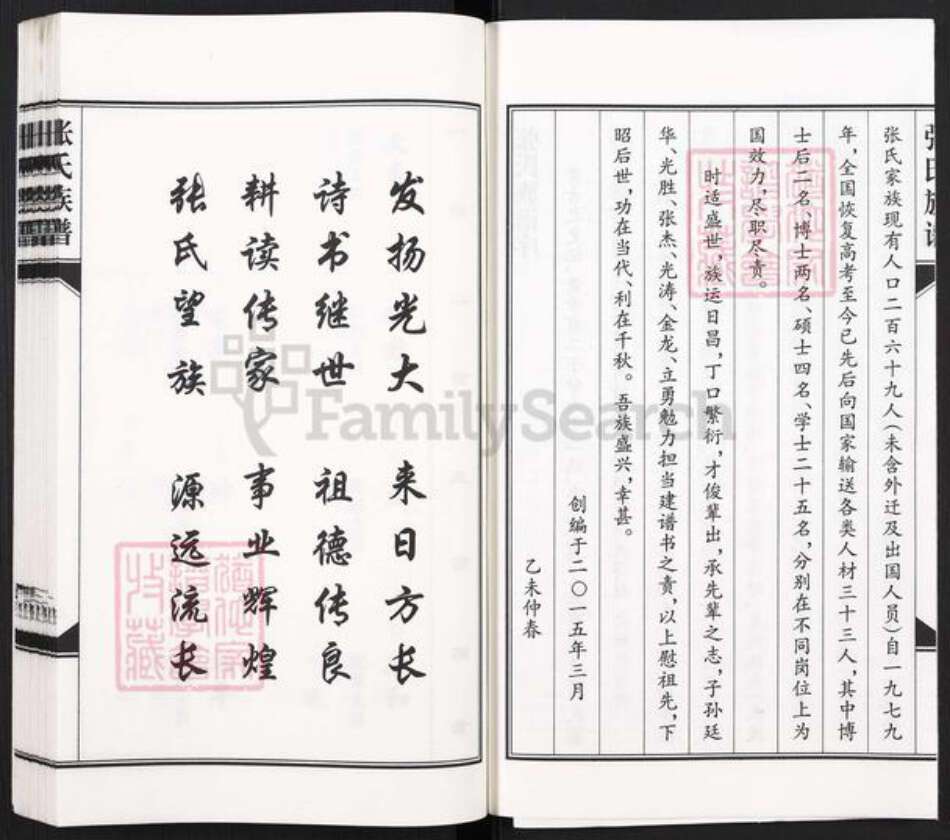 张氏族谱
张氏家族现有人口二百六十九人(未含外迁及出国人员)自一九七九
年,全国恢复高考至今已先后向国家输送各类人材三十三人,其中博
士后二名、博士两名、硕士四名、学士二十五名,分别在不同岗位上为
国效力,尽职尽责。
时适盛世,族运日昌,丁口繁衍,才俊辈出,承先辈之志,子孙廷
华、光胜、张杰、光涛、金龙、立勇勉力担当建谱书之责,以上慰祖先,下
昭后世,功在当代、利在千秋。吾族盛兴,幸甚。
创编于二〇一五年三月
乙未仲春
发扬光大 来日方长
诗书继世 祖德传良
耕读传家 事业辉煌
张氏望族 源远流长
张氏族谱
FamilySearch